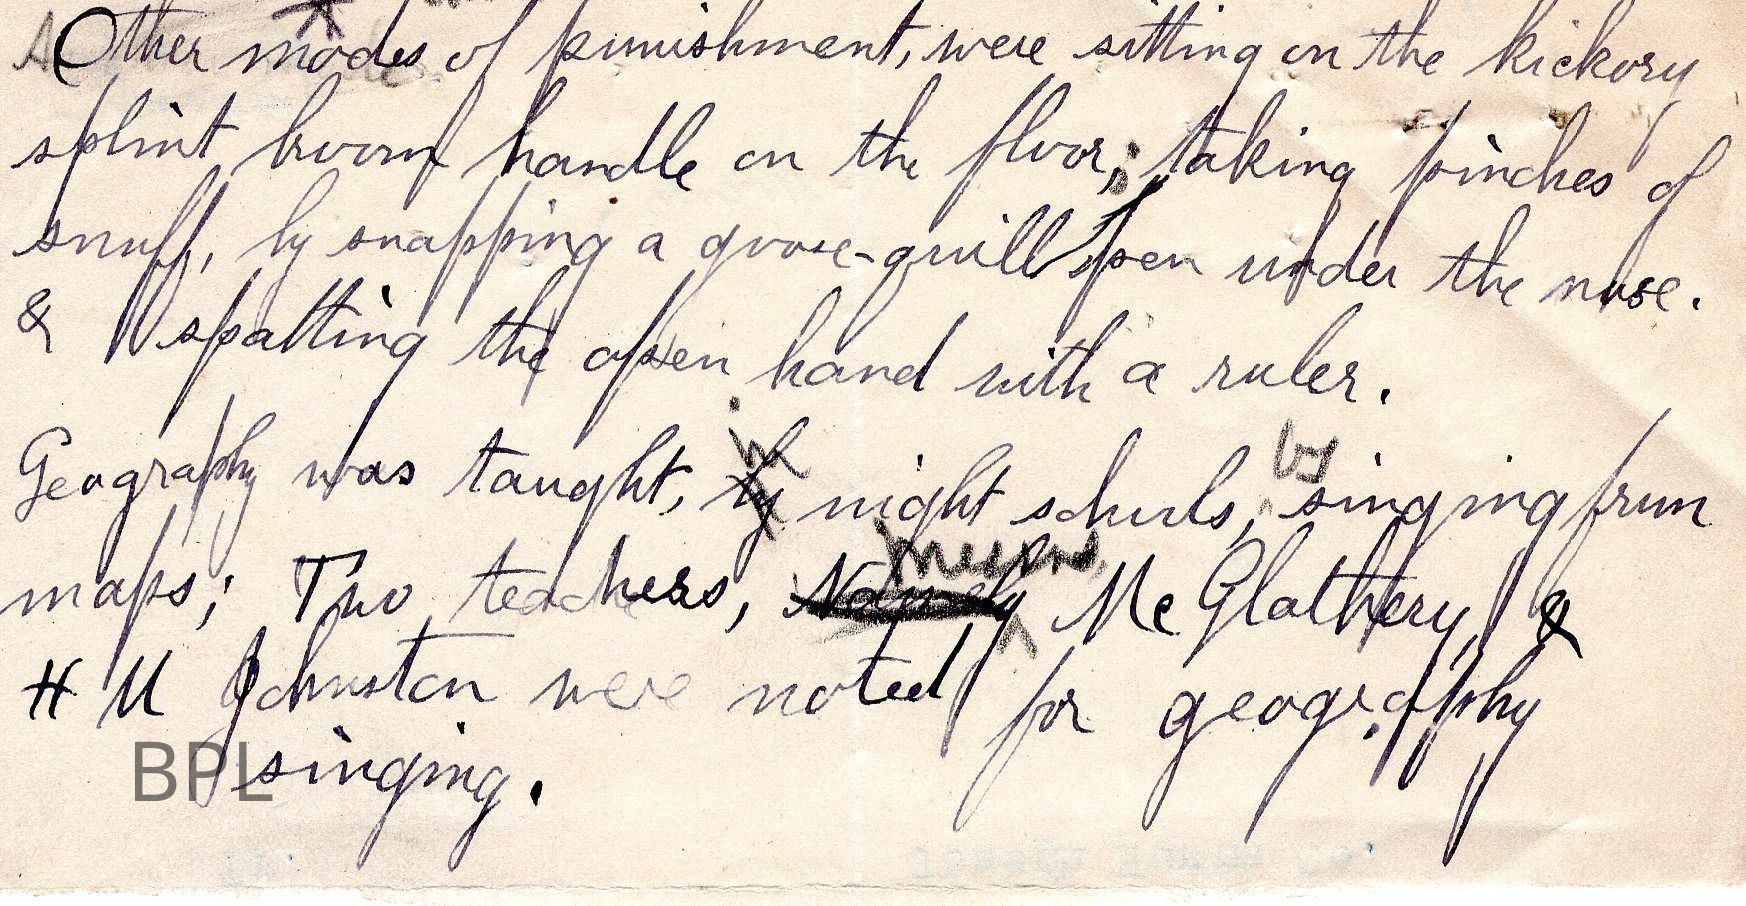 Other modes of punishment, were sitting on the hickory
splint broom handle on the floor; taking pinches of
snuff, by snapping a goose-quill pen under the nose.
& spatting the open hand with a ruler.
Geography was taught, in night schools, by singing from
maps; Two teachers, Namely Mc Glathery, &
H U Johnston were noted for geography
singing.
BPL